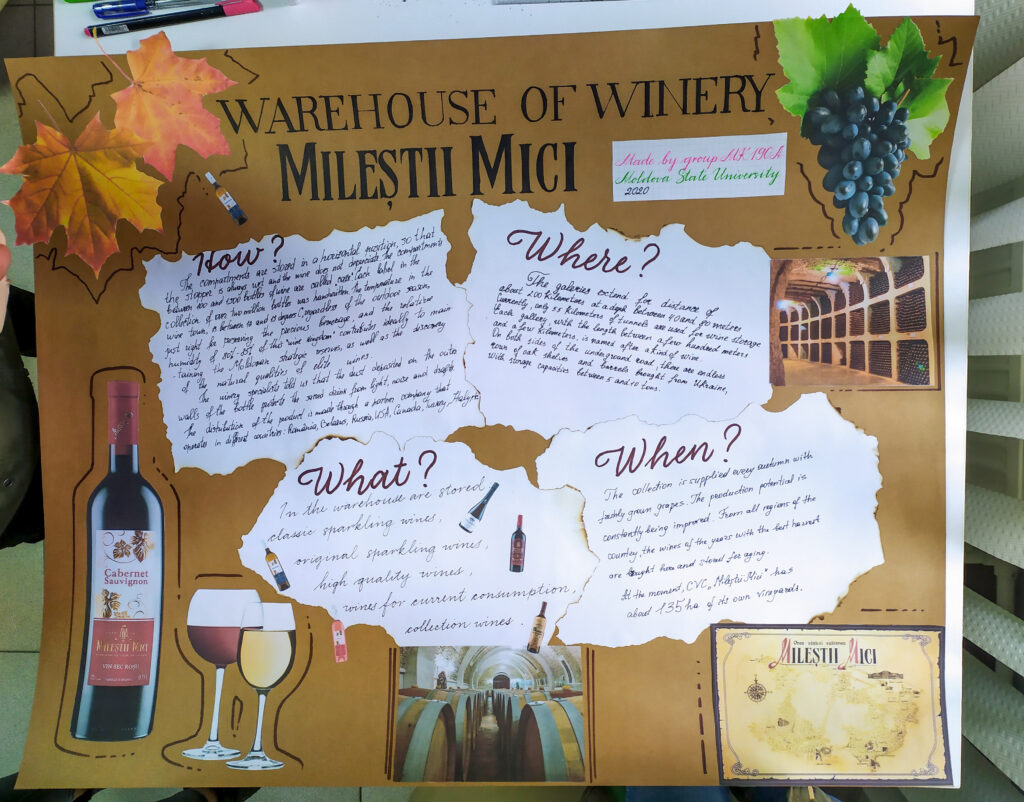 WAREHOUSE OF WINERY
MILEȘTII MICI
Made by group MK 190A
Moldova State University
2020
How?
The compartments are stored in a horizontal position, so that
the stopple is always wet and the wine does not depreciate. The compartments
between 400 and 1500 bottles of wine are called cask. Each label in the
collection of over two million bottles was handwritten. The temperature in the
wine town, is between 12 and 13 degrees (regardless of the outdoor season
just right for preserving the precious beverage, and the relative
humidity of 85%-95% of this "wine kingdom" contributes ideally to main
-taining the Moldovan strategic reserves, as well as the discovery
of the natural qualities of elite wines.
The winery specialists told us that the dust deposited on the outer
walls of the bottle protects the sacred drink from light, noise and drafts.
The distribution of the product is made through a partner company that
operates in different countries: Romania, Belarus, Russia, USA, Canada, Turkey, Italy,
Where?
The galeries extend for distance of
about 200 kilometers at a depth between 40 and 90 meters
Currently, only 55 kilometers of tunnels are used for wine storage
Each gallery, with the length between a few hundred meters
and a few kilometers, is named after a kind of wine.
On both sides of the underground road, there are endless
rows of oak shelves and barrels brought from Ukraine,
with storage capacities between 5 and 20 tons.
What?
In the warehouse are stored
classic sparkling wines,
original sparkling wines,
high quality wines,
wines for current consumption,
collection wines.
When?
The collection is supplied every autumn with
freshly grown grapes. The production potential is
constantly being improved. From all regions of the
country, the wines of the years with the best harvest
are bought here and stored for aging.
At the moment, CVC „Mileștii Mici" has
about 135 ha of its own vineyards.
Cabernet
Sauvignon
MILEȘTII MICI
VIN SEC ROȘU
MILEȘTII MICI